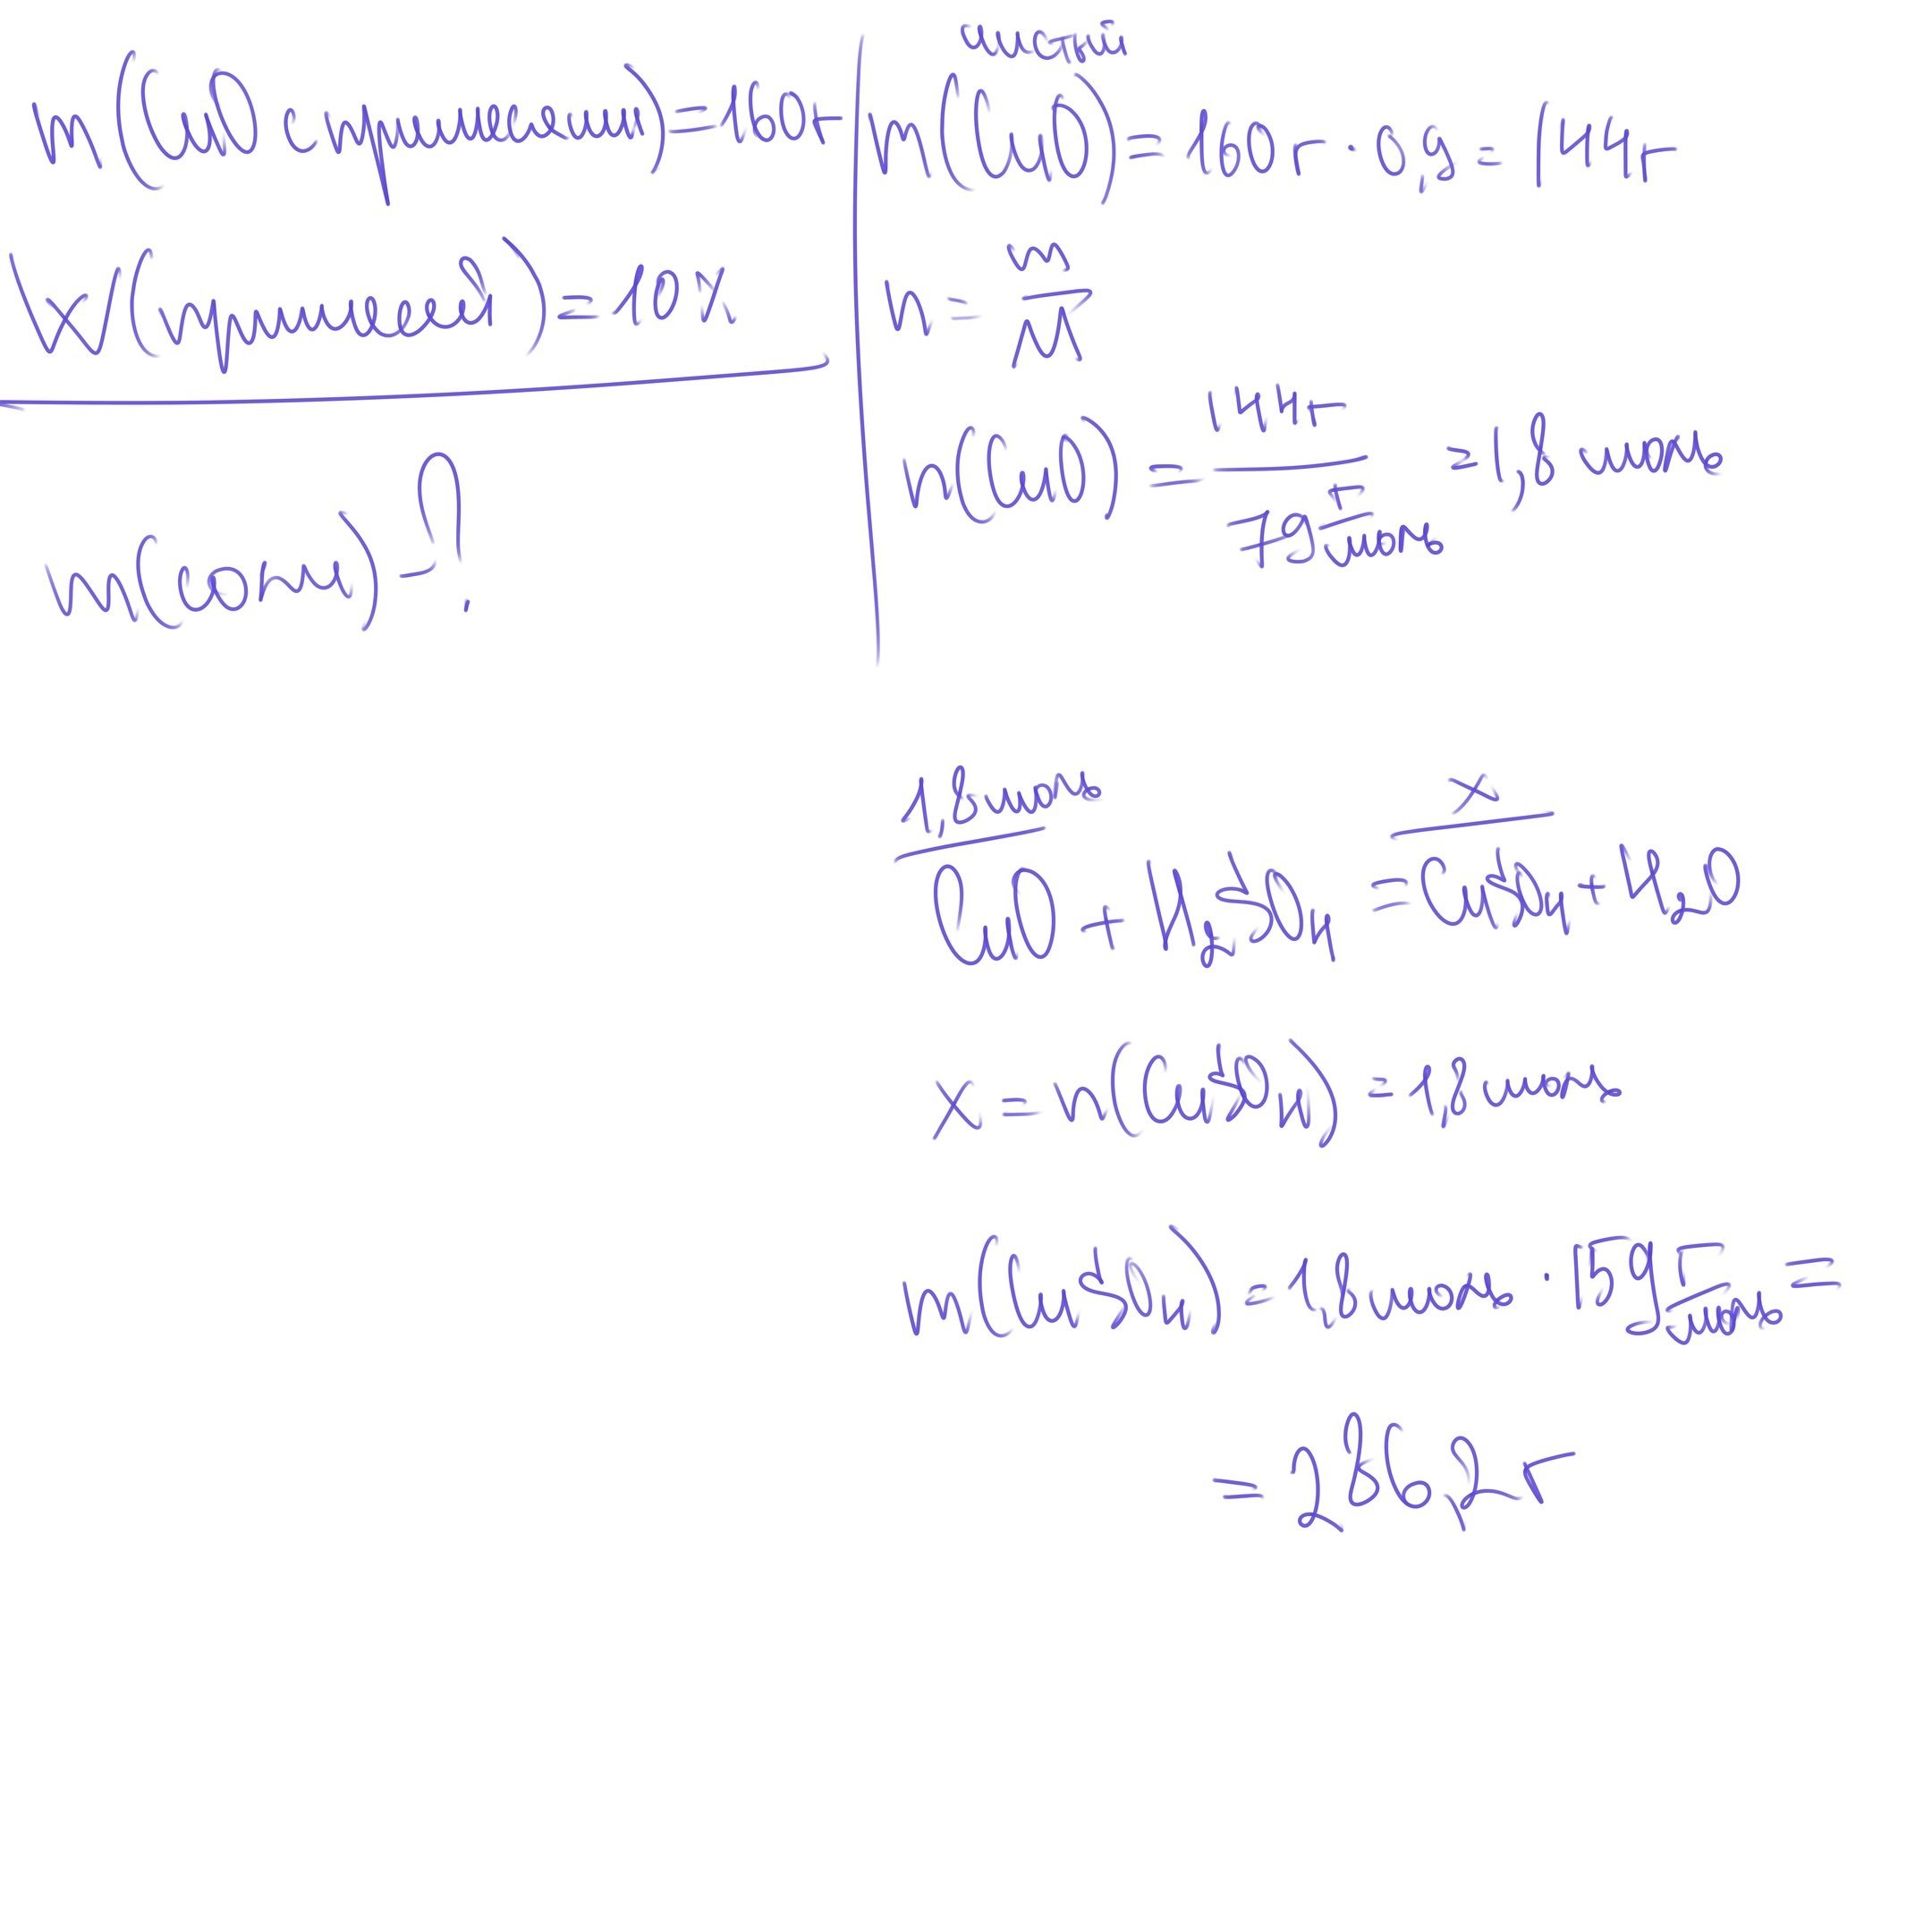 m(CuO с примесями) = 160г
W(примесей) = 10%
m(соли) - ?
чистый
m(CuO) = 160г · 0,9 = 144г
n = m/M
n(CuO) = 144г / 79 г/моль = 1,8 моль
1,8 моль x
CuO + H₂SO₄ = CuSO₄ + H₂O
x = n(CuSO₄) = 1,8 моль
m(CuSO₄) = 1,8 моль · 159 г/моль =
= 286,2 г